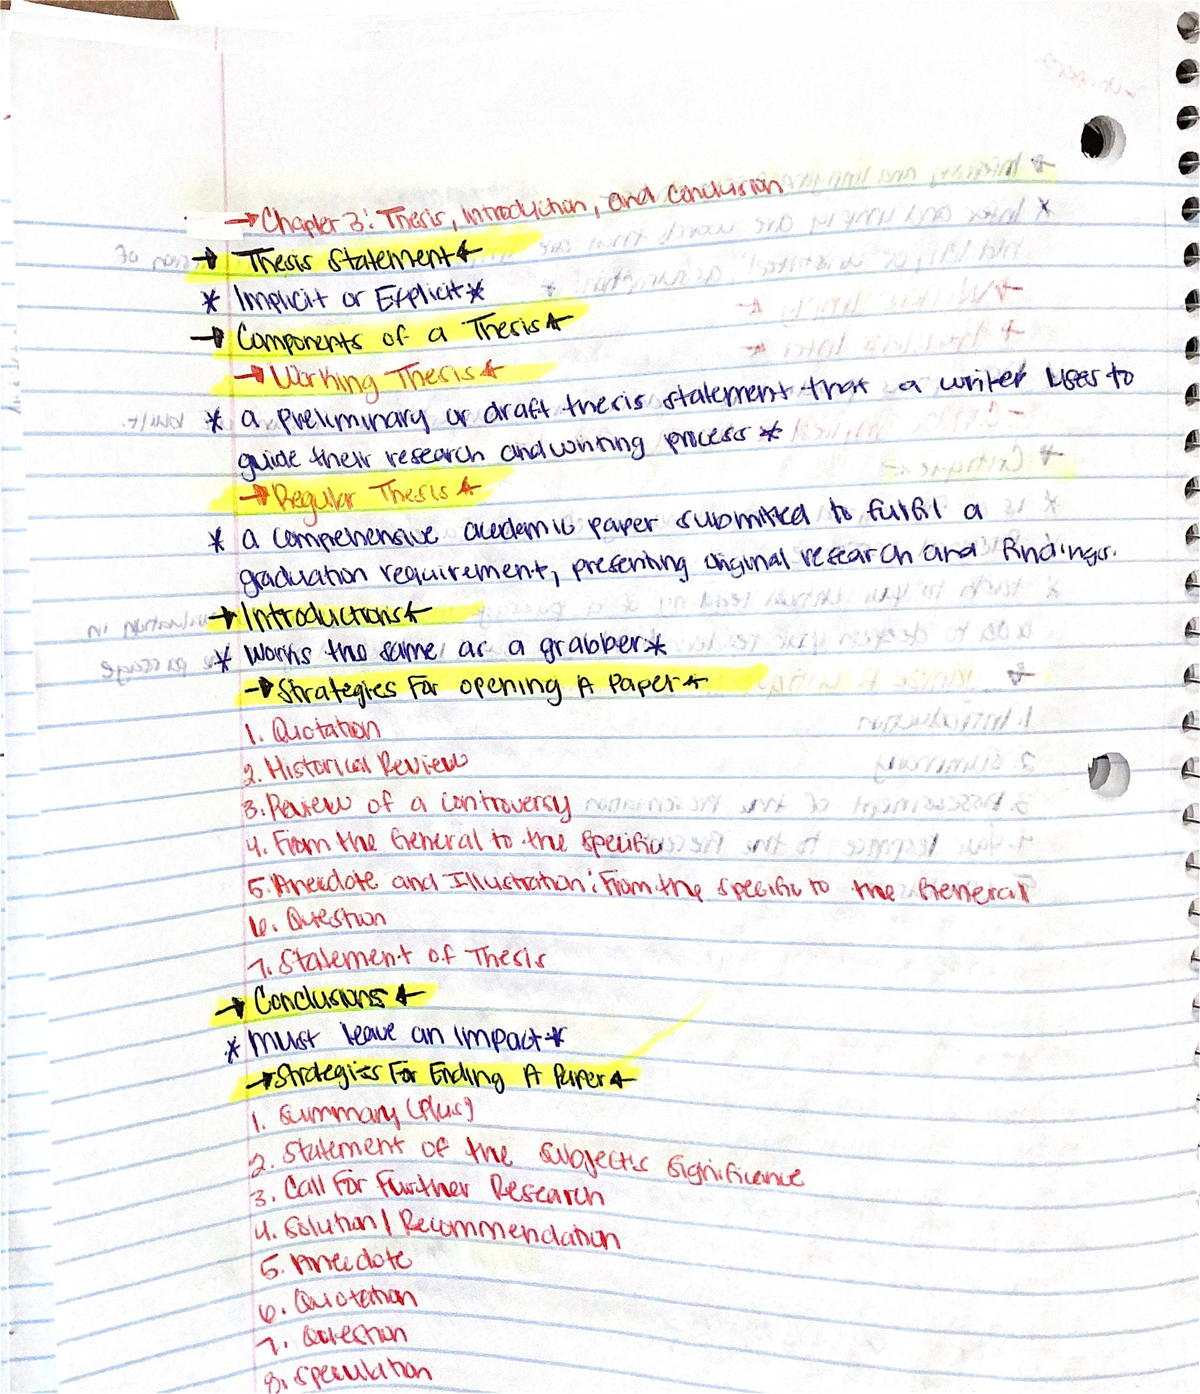 → Chapter 3: Thesis, Introduction, and Conclusion
→ Thesis Statement ←
* Implicit or Explicit *
→ Components of a Thesis ←
→ Working Thesis ←
* a preliminary or draft thesis statement that a writer uses to
guide their research and writing process *
→ Regular Thesis ←
* a comprehensive academic paper submitted to fulfil a
graduation requirement, presenting original research and findings.
→ Introductions ←
* Works the same as a grabber *
→ Strategies For opening A Paper ←
1. Quotation
2. Historical Review
3. Review of a controversy
4. From the General to the Specific
5. Anecdote and Illustration: From the specific to the General
6. Question
7. Statement of Thesis
→ Conclusions ←
* Must leave an impact *
→ Strategies For Ending A Paper ←
1. Summary (Plus)
2. Statement of the subject's significance
3. Call For Further Research
4. Solution / Recommendation
5. Anecdote
6. Quotation
7. Question
8. Speculation